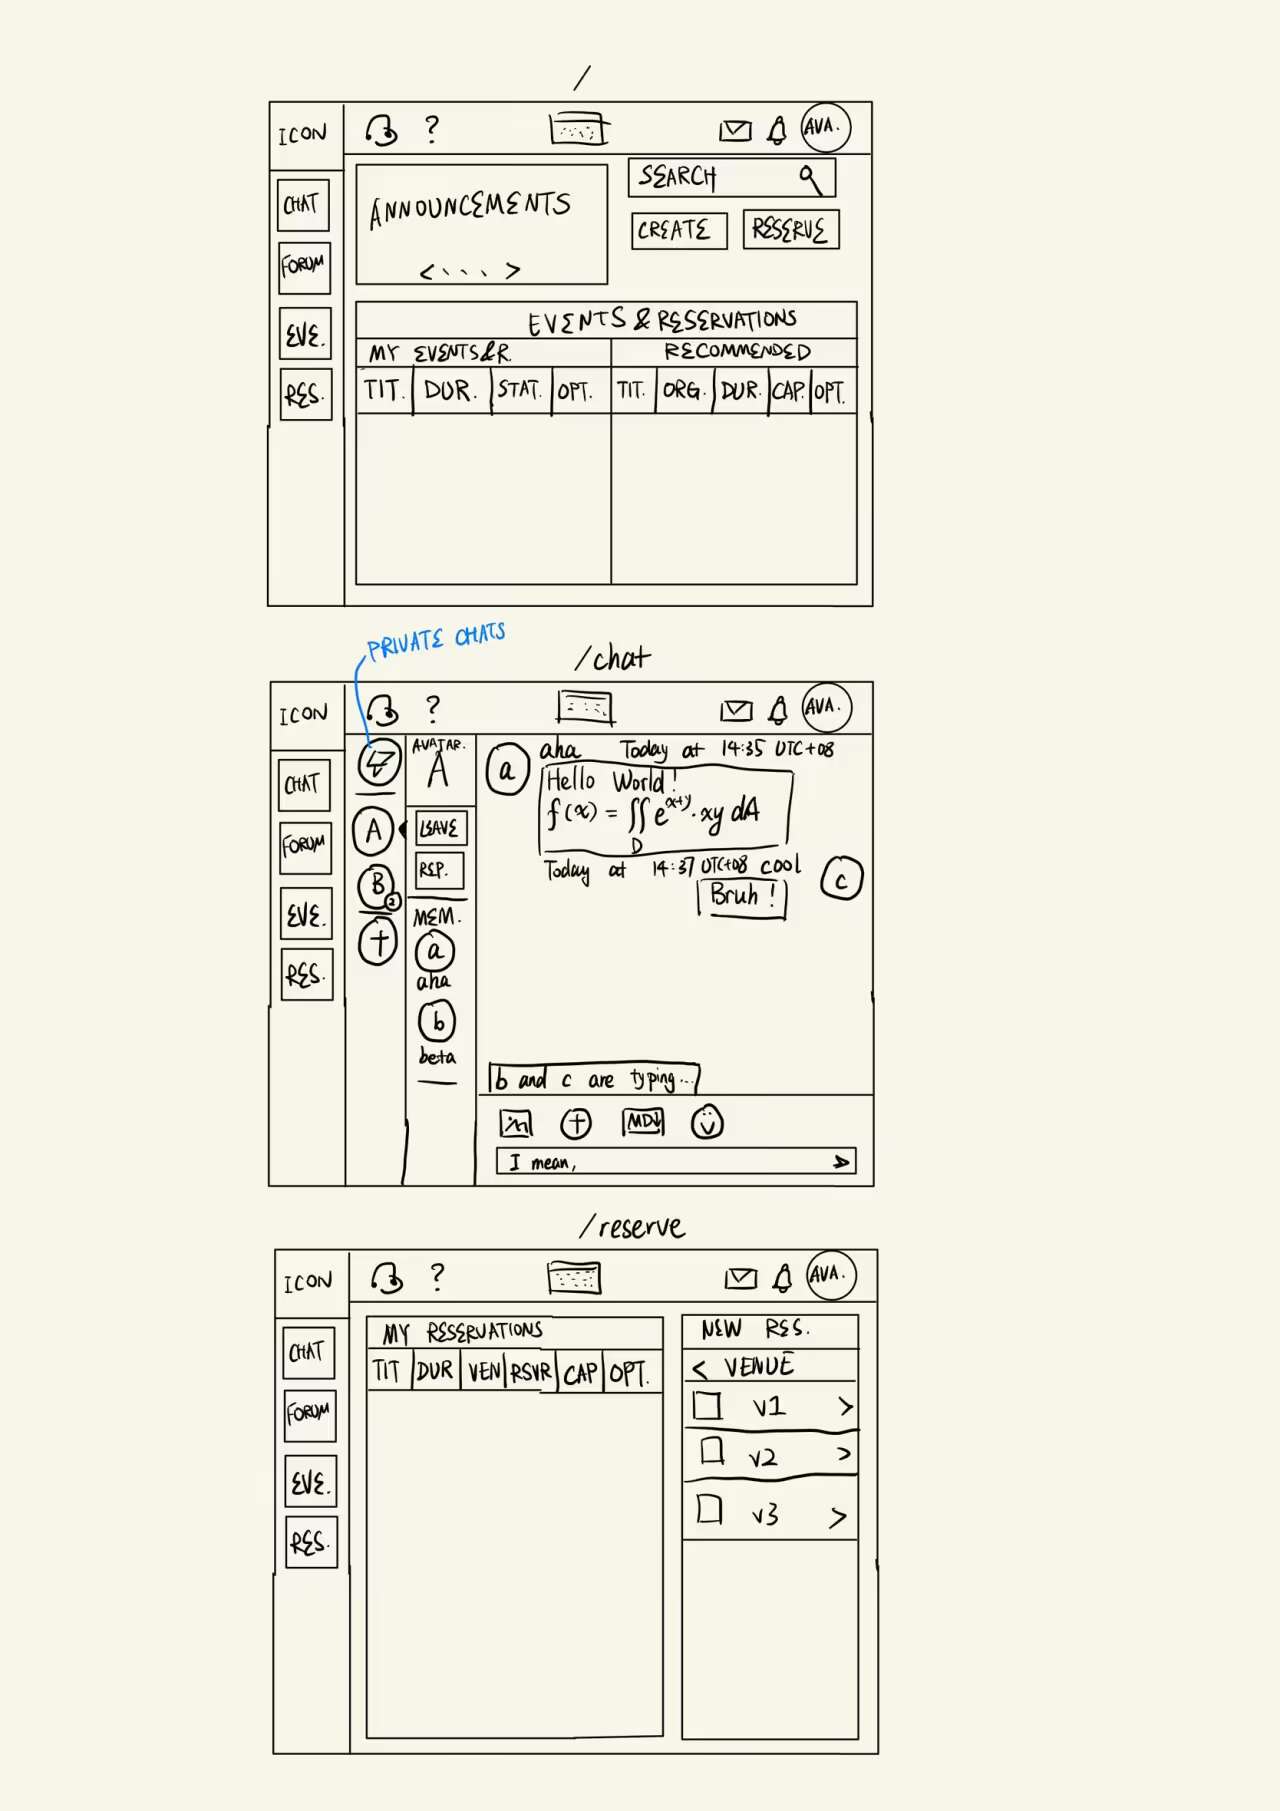 /
ICON
?
AVA.
CHAT
FORUM
EVE.
RES.
ANNOUNCEMENTS
< . . . >
SEARCH
CREATE
RESERVE
EVENTS & RESERVATIONS
MY EVENTS&R.
RECOMMENDED
TIT. DUR. STAT. OPT.
TIT. ORG. DUR. CAP. OPT.
PRIVATE CHATS
/chat
ICON
?
AVA.
CHAT
FORUM
EVE.
RES.
A
B
2
+
AVATAR.
A
LEAVE
MEM.
a
aha
b
beta
a
aha Today at 14:35 UTC+08
Hello World!
f(x) = ∬ e^(x+y) · xy dA
D
Today at 14:37 UTC+08 cool
c
Bruh !
b and c are typing...
+
MD↓
I mean,
/reserve
ICON
?
AVA.
CHAT
FORUM
EVE.
RES.
MY RESERVATIONS
TIT DUR VEN RSVR CAP OPT.
NEW RES.
< VENUE
v1 >
v2 >
v3 >